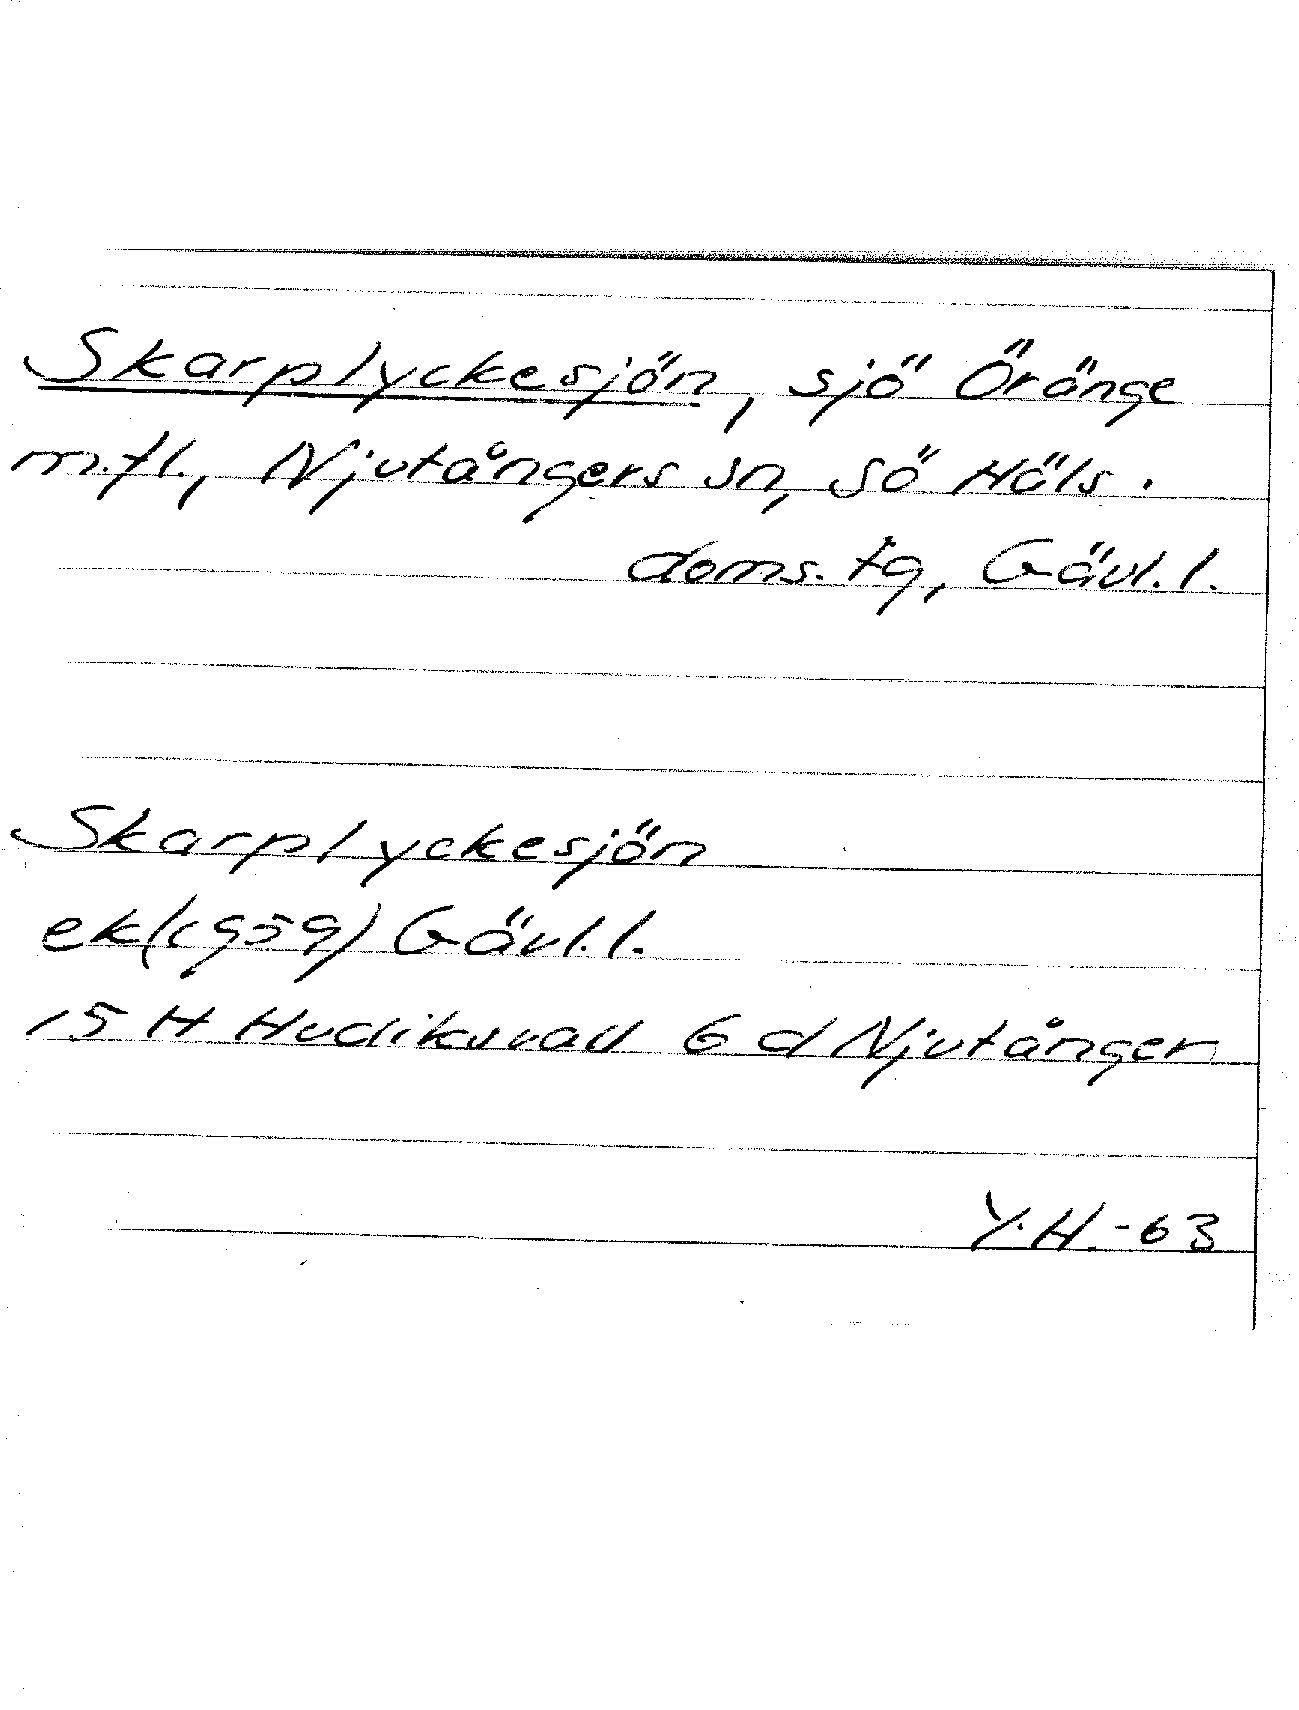 Skarplyckesjön, sjö Öränge
m.fl., Njutångers sn, sö Häls.
doms. tg, Gävl. l.
Skarplyckesjön
ek(1959) Gävl. l.
15 H Hudiksvall 6 d Njutånger
Y.H.-63